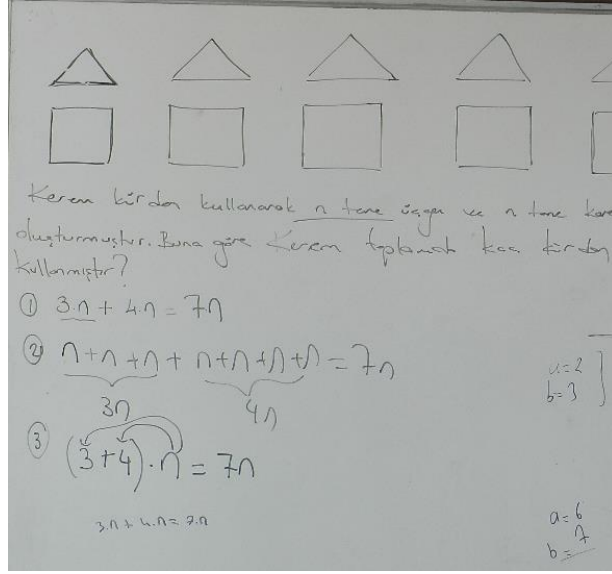 Kerem kürdan kullanarak n tane üçgen ve n tane kare
oluşturmuştur. Buna göre Kerem toplamda kaç kürdan
kullanmıştır?
① 3.n + 4.n = 7n
② n+n+n + n+n+n+n = 7n
3n 4n
③ (3+4).n = 7n
3.n + 4.n = 7.n
a=2
b=3
a=6
b=7